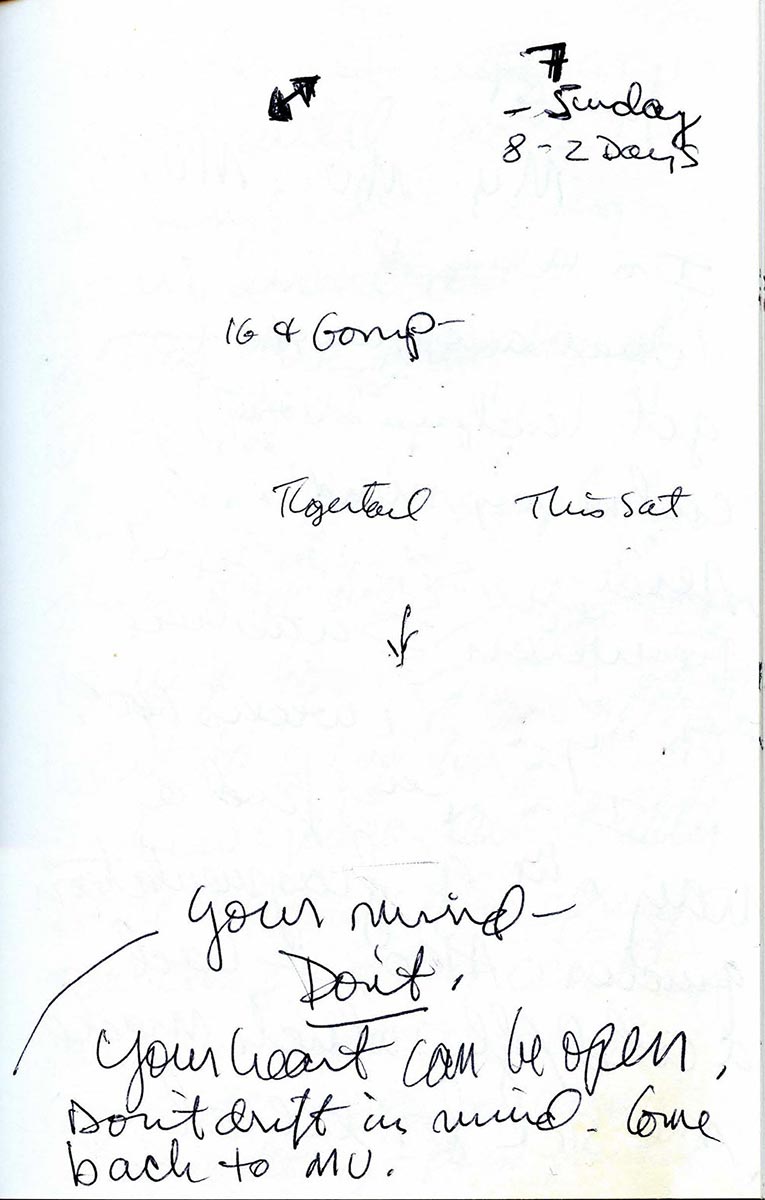 7
- Sunday
8 - 2 Days
16 &
Tigertail This Sat
your mind -
Don't.
your heart can be open,
Don't drift in mind. Come
back to MU.